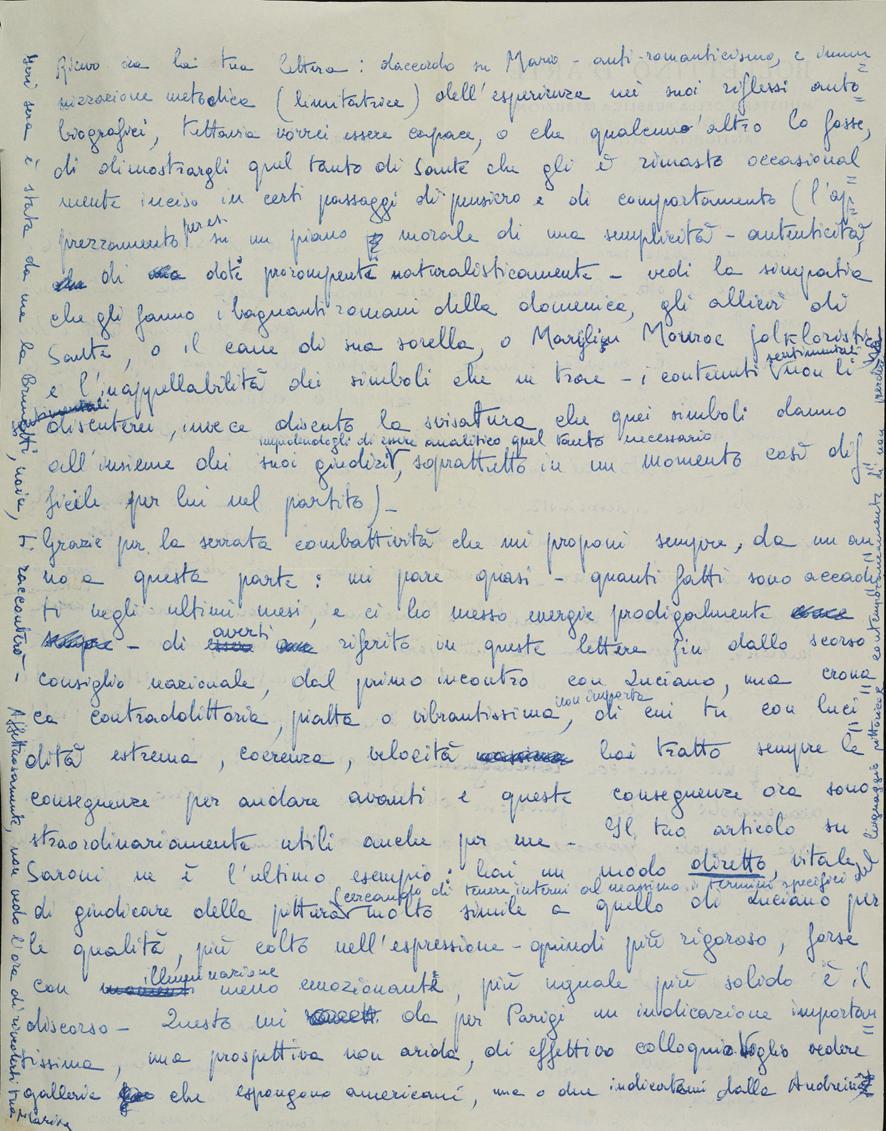 Ricevo ora la tua lettera: daccordo su Mario - anti-romanticismo, e immu=
nizzazione metodica (limitatrice) dell'esperienza nei suoi riflessi auto=
biografici, tuttavia vorrei essere capace, o che qualcuno altro lo fosse,
di dimostrargli quel tanto di Sante che gli è rimasto occasional=
mente inciso in certi passaggi di pensiero e di comportamento (l'ap=
prezzamento per es. su un piano morale di una semplicità - autenticità,
di doti prorompenti naturalisticamente - vedi la simpatia
che gli fanno i bagnanti romani della domenica, gli allievi di
Sante, o il cane di sua sorella, o Marylin Monroe folkloristica
e l'inappellabilità dei simboli che ne trae - i contenuti sentimentali non li
discuterei, invece discuto la svisatura che quei simboli danno
all'insieme dei suoi giudizi, impedendogli di essere analitico quel tanto necessario, soprattutto in un momento così dif=
ficile per lui nel partito)-
Grazie per la serrata combattività che mi proponi sempre, da un an=
no a questa parte: mi pare quasi - quanti fatti sono accadu=
ti negli ultimi mesi, e ci ho messo energie prodigalmente
- di averti riferito in queste lettere fin dallo scorso
consiglio nazionale, dal primo incontro con Luciano, una crona=
ca contradditoria, piatta o vibrantissima, non importa, di cui tu con luci=
dità estrema, coerenza, velocità hai tratto sempre le
conseguenze per andare avanti e queste conseguenze ora sono
straordinariamente utili anche per me - Il tuo articolo su
Saroni ne è l'ultimo esempio: hai un modo diretto, vitale,
di giudicare della pittura cercando di tenere interni al massimo i termini specifici del linguaggio pittorico e contemporaneamente di non perderla molto simile a quello di Luciano per
le qualità, più colto nell'espressione - quindi più rigoroso, forse
con illuminazione meno emozionante, più uguale più solido è il
discorso - Questo mi da per Parigi un indicazione importan=
tissima, una prospettiva non arida, di effettivo colloquio. Voglio vedere
gallerie che espongono americani, una o due indicatemi dalla Andreina
Ieri sera è stata da me la Brunetti, naive, ti racconterò - Affettuosamente, non vedo l'ora di rivederti tua
Marisa